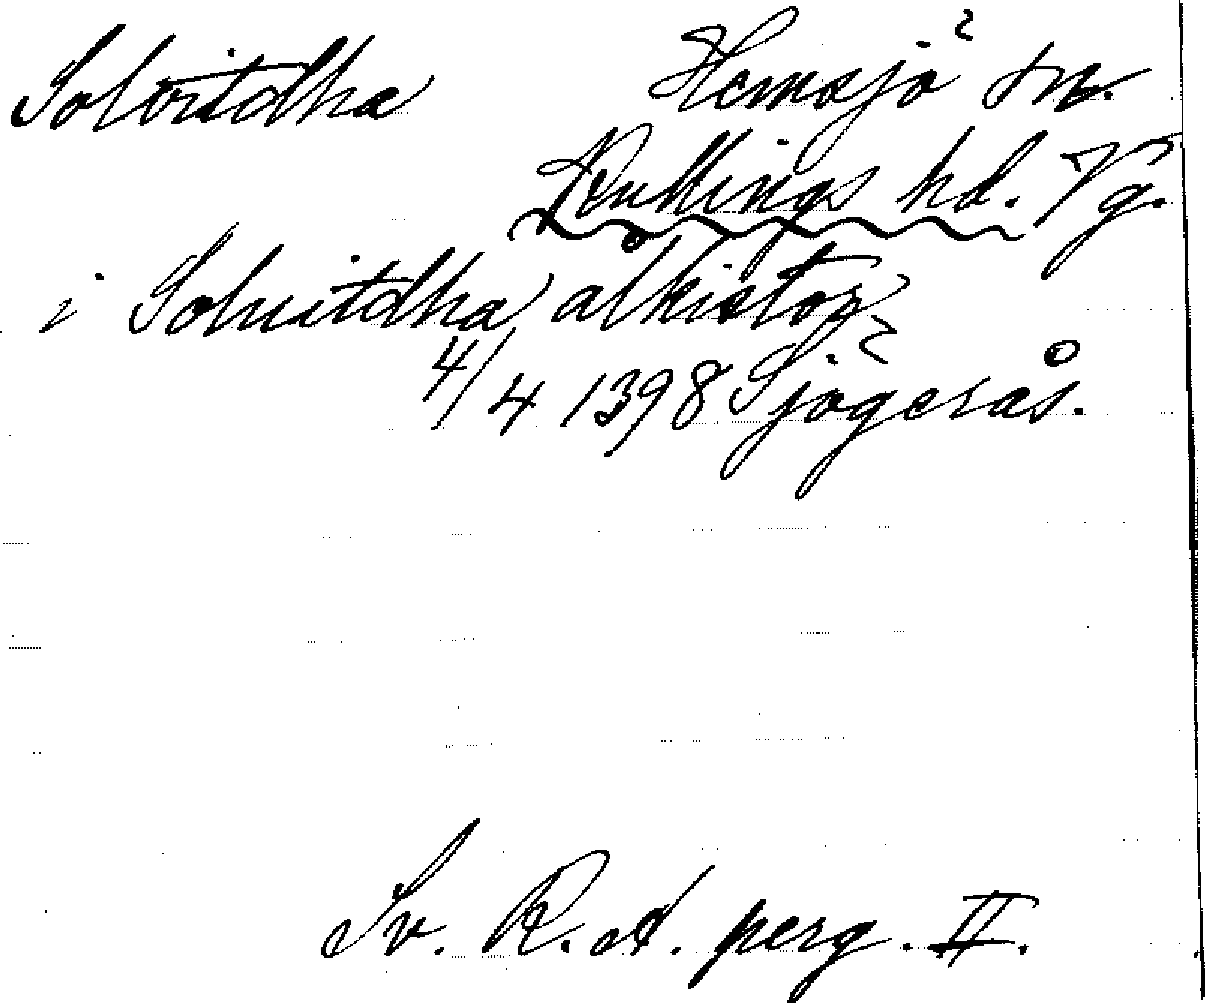 Solvitdha Hemsjö sn.
Kullings hd. Vg.
i Soluitdha ålkistor
4/4 1398 Sjögerås.
Sv. R. A. perg. II.